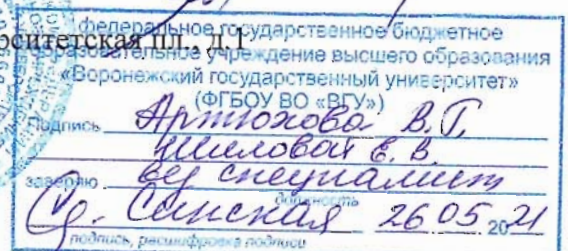 ситетская пл., д.1
федеральное государственное бюджетное
образовательное учреждение высшего образования
«Воронежский государственный университет»
(ФГБОУ ВО «ВГУ»)
Подпись Артюхова В.Г,
Шиловой Е. В.
заверяю вед специалист
должность
Синская 26 05 2021
подпись, расшифровка подписи